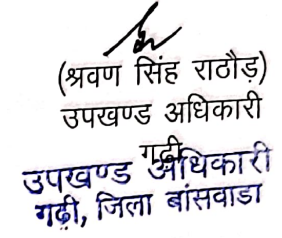 (श्रवण सिंह राठौड़)
उपखण्ड अधिकारी
गढ़ी
उपखण्ड अधिकारी
गढ़ी, जिला बांसवाडा